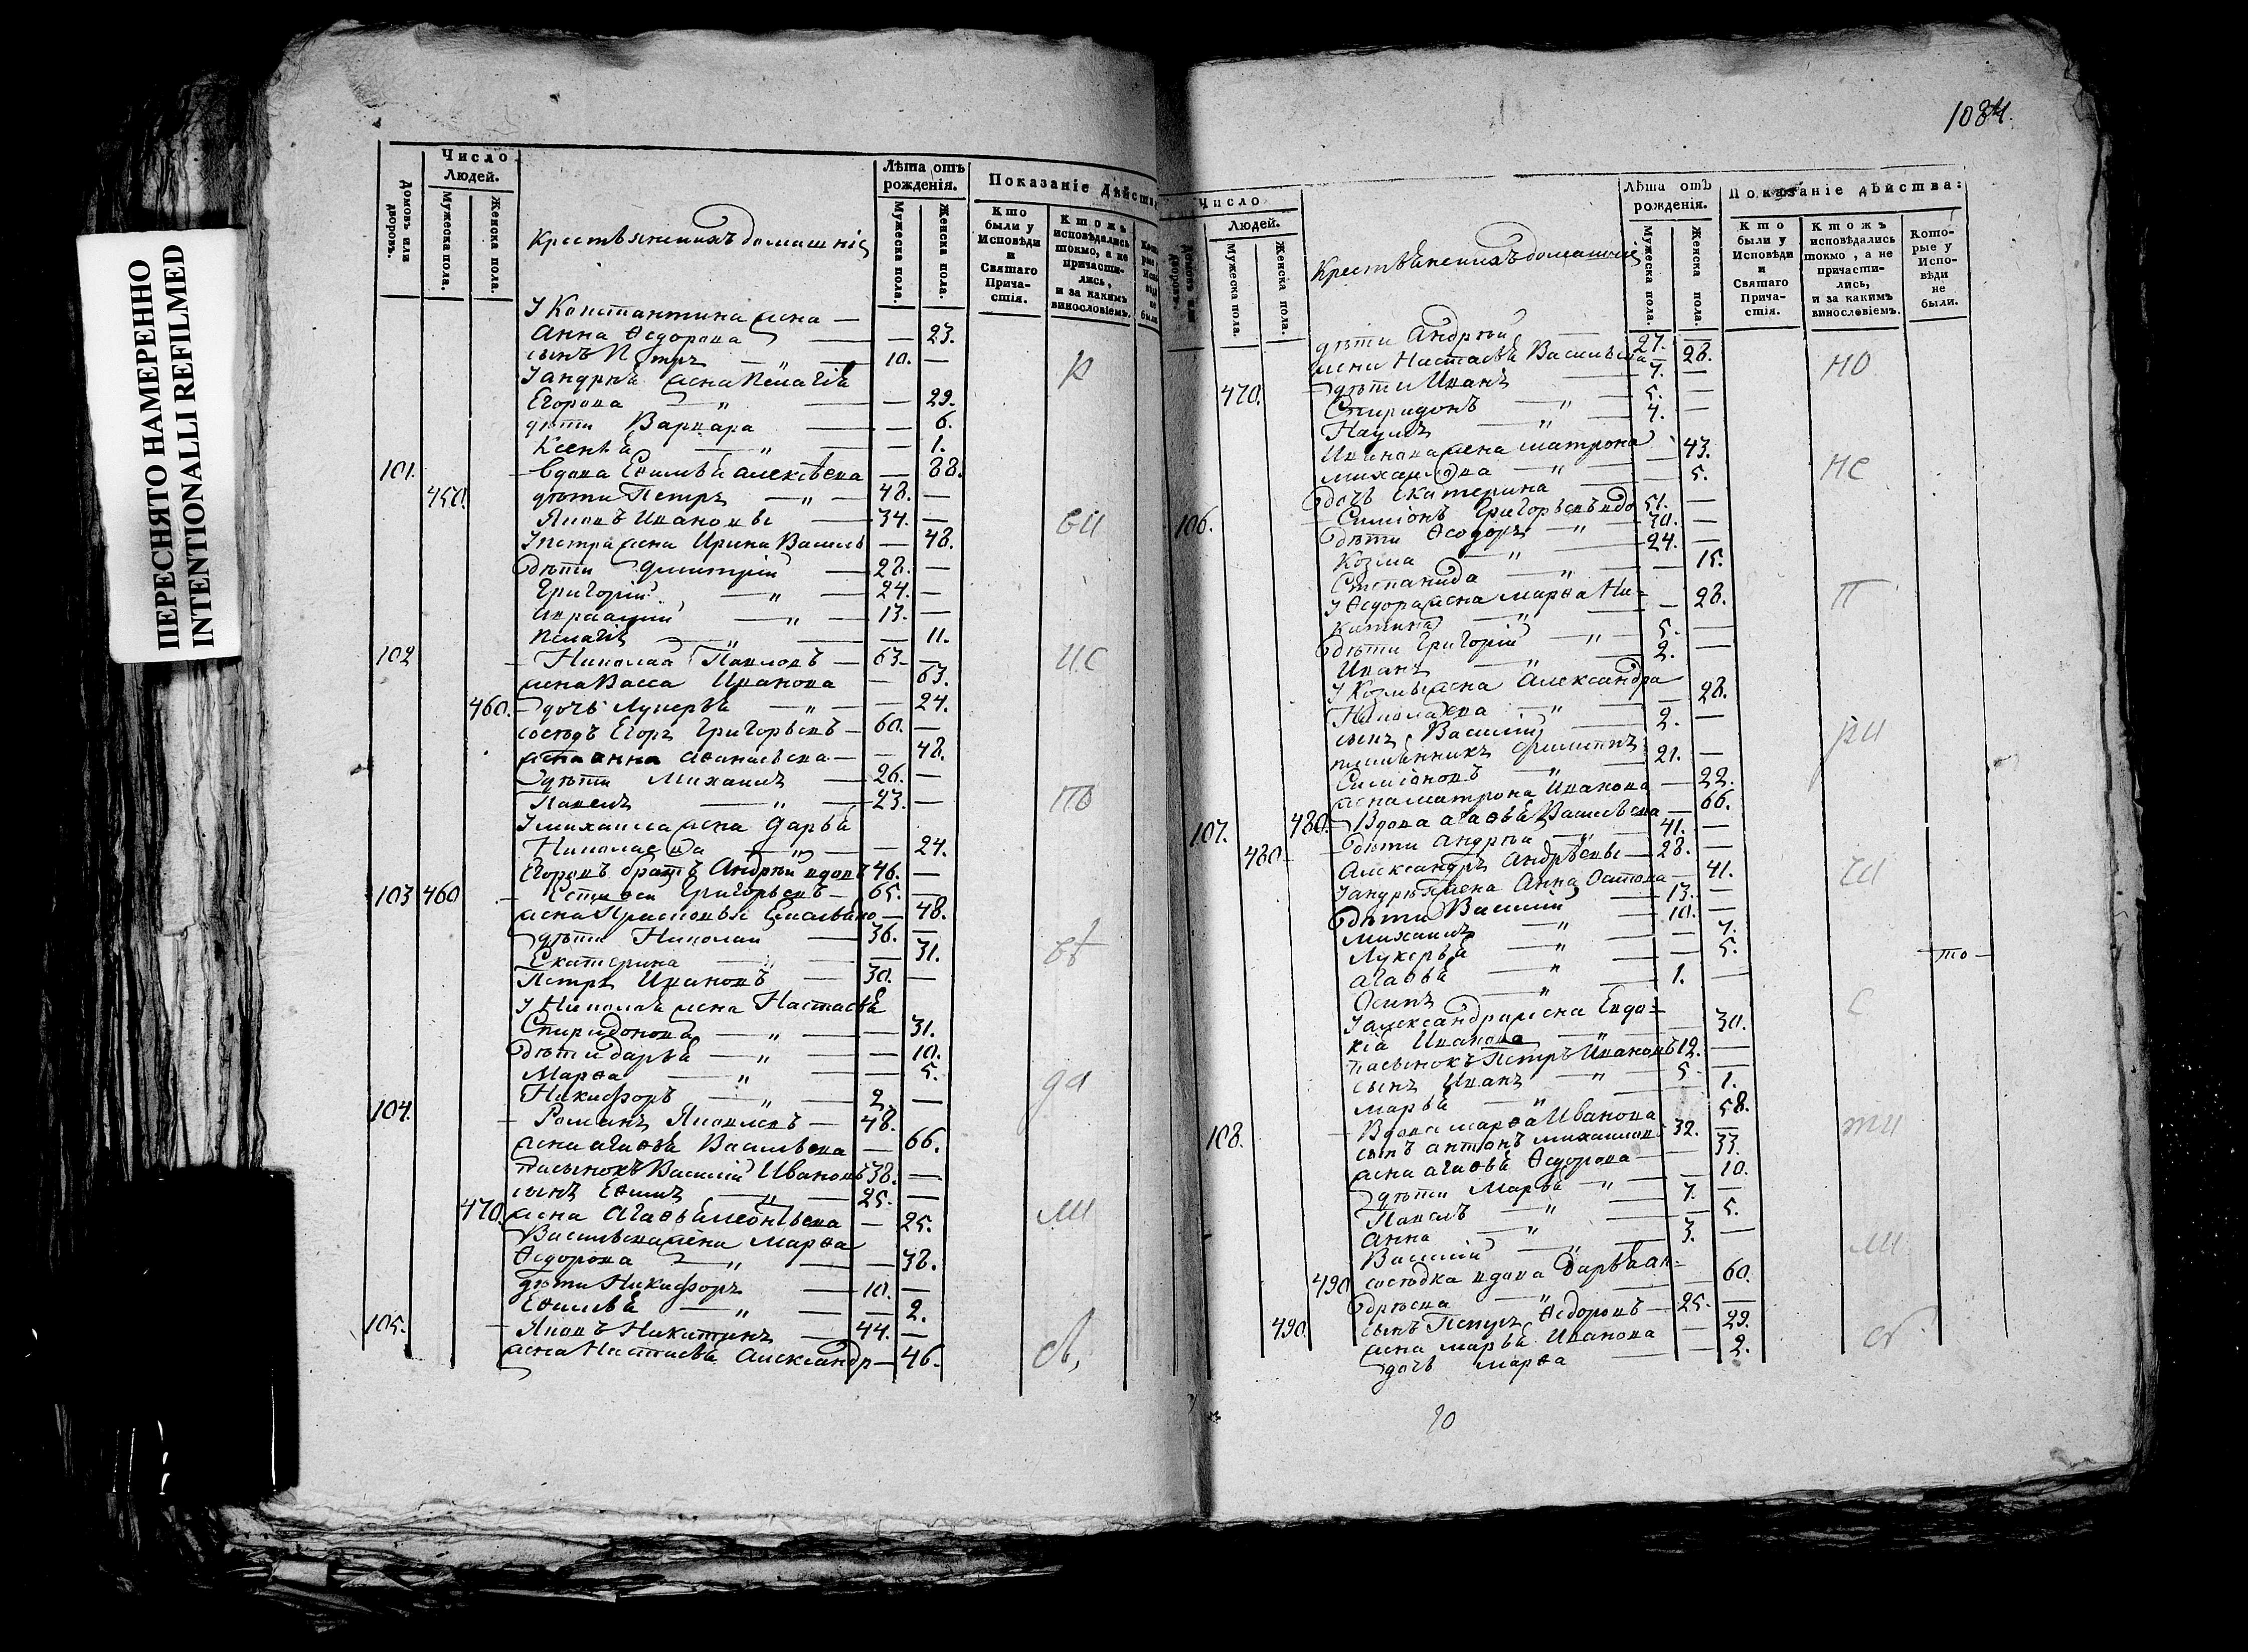 ПЕРЕСНЯТО НАМЕРЕННО
INTENTIONALLI REFILMED
Домовъ или дворовъ.
Число Людей.
Мужеска пола.
Женска пола.
Крестьяне и ихъ домашніе
Лѣта отъ рожденія.
Мужеска пола.
Женска пола.
Показаніе дѣйства
Кто были у Исповѣди и Святаго Причастія.
Ктожъ исповѣдались токмо, а не причастились, и за какимъ винословіемъ.
У Константина жена —
Анна Ѳедорова — — 23.
сынъ Петръ — „ — 10. —
У андрея жена Пелагія
Егорова — „ — — 29.
дѣти Варвара — — 6.
Ксенья — „ — — 1.
101. Вдова Евимья алексѣева — 88.
450. дѣти Петръ — „ — 48. —
Яковъ Ивановы — 34. —
У петра жена Ирина Василь — 48.
дѣти Димитрій — 28. —
Григорій — „ — 24. —
авраамій — „ — 13. —
Пелагія — „ — — 11.
102 Николай Павловъ — 63. —
жена Васса Иванова — 63.
460. дочь Лукерья — „ — — 24.
сосѣдъ Егоръ Григорьевъ — 60. —
жена анна Аѳанасьева — — 48.
дѣти Михаилъ — 26. —
Павелъ — „ — 23. —
У михаила жена Дарья
Николаева — „ — — 24.
Егоровъ братъ Андрей вдовъ 46. —
103 460 Естифей Григорьевъ — 65. —
жена Прасковья Емельяно — 48.
дѣти Николай — 36. —
Екатерина — „ — — 31.
Петръ Ивановъ — 30. —
У Николая жена Настасья
Спиридонова — „ — — 31.
дѣти дарья — „ — — 10.
Марѳа — „ — — 5.
Никифоръ — „ — 2. —
104. Романъ Яковлевъ — 48.
жена агаѳья Васильева — 66.
пасынокъ Василій Ивановъ 38. —
сынъ Евимъ — „ — 25. —
470. жена Агаѳья Леонтьева — 25.
Васильева жена Марѳа
Ѳедорова — „ — — 38.
дѣти Никифоръ — 10. —
Евимья — „ — — 2.
105. Яковъ Никитинъ — 44. —
жена Настасья Александр — 46.
1084.
Число Людей.
Мужеска пола.
Женска пола.
Крестьяне и ихъ домашніе
Лѣта отъ рожденія.
Мужеска пола.
Женска пола.
Показаніе дѣйства:
Кто были у Исповѣди и Святаго Причастія.
Ктожъ исповѣдались токмо, а не причастились, и за какимъ винословіемъ.
Которые у Исповѣди не были.
дѣти Андрей — 27. —
жена Настасья Васильева — 28.
470. дѣти Иванъ — 7. —
Спиридонъ — „ — 5. —
Наумъ — „ — 4. —
Иванова жена матрона
михаилова — „ — — 43.
дочь Екатерина — — 5.
106. Симіонъ Григорьевъ вдо 51. —
дѣти Ѳеодоръ — „ — 30. —
Козма — „ — 24. —
Степанида — „ — — 15.
У Ѳедора жена марѳа Ни=
китина — „ — — 28.
дѣти Григорій — „ — 5. —
Иванъ — „ — 2. —
У Козмы жена Александра
Николаева — „ — — 28.
сынъ Василій — 2. —
племянникъ филиппъ
Симіоновъ — „ — 21. —
жена матрона Иванова — 22.
107. 480. Вдова агаѳья Васильева — 66.
480 дѣти андрей — „ — 41. —
Александръ Андрѣевы — 28. —
У андрея жена Анна Остова — 41.
дѣти Василій — 13. —
михаилъ — „ — 10. —
Лукерья — „ — — 7.
агаѳья — „ — — 5.
Осипъ — „ — 1. —
У александра жена Евдо=
кія Иванова — „ — — 30.
пасынокъ Петръ Ивановъ 12. —
сынъ Иванъ — „ — 5 —
марья — „ — — 1.
108. Вдова марѳа Иванова — 58.
сынъ антонъ михаиловъ 32. —
жена агаѳья Ѳедорова — 33.
дѣти Марья — „ — — 10.
Павелъ — „ — 7. —
анна — „ — — 5.
Василій — „ — 3. —
490 сосѣдка вдова Дарья ан=
дрѣева — „ — — 60.
490. сынъ Петръ Ѳедоровъ — 25. —
жена марья Иванова — 29.
дочь марѳа — — 2.
но
не
п
ри
ча
— то —
с
ти
ли
сѣ
20